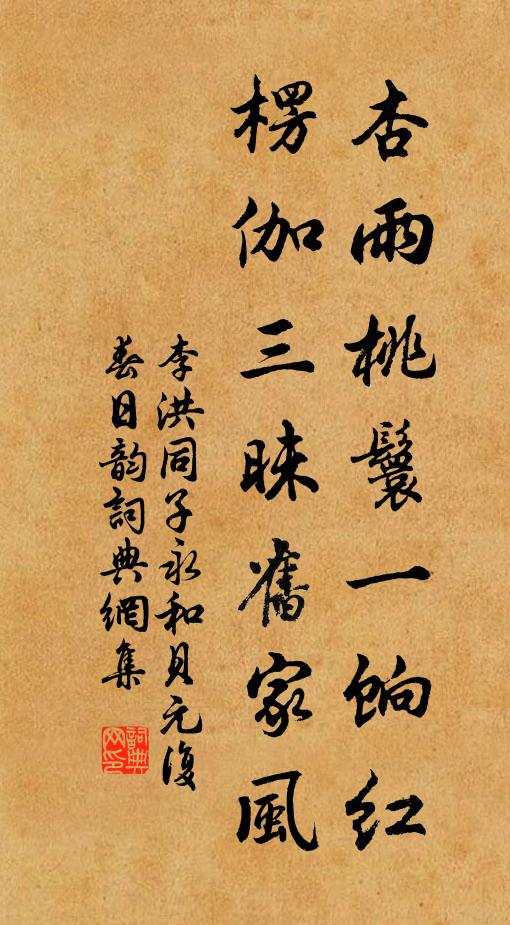 杏雨桃鬟一餉红
楞伽三昧舊家風
李洪同子永和貝元復
春日韵詞典網集
詞典网印